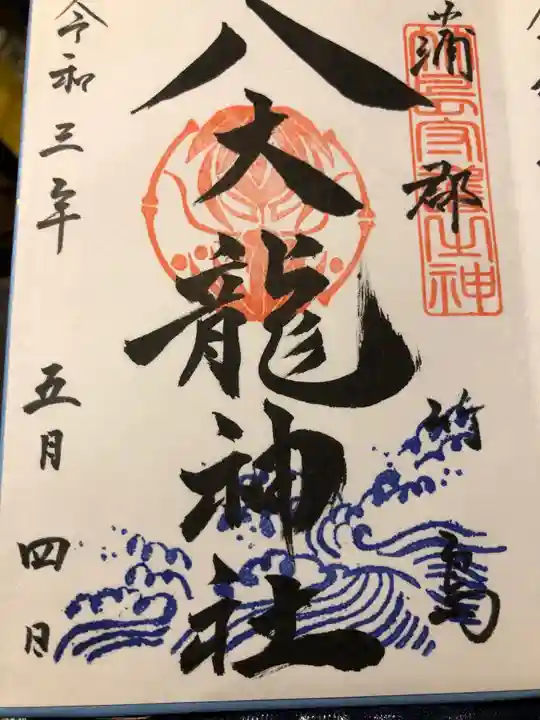 蒲郡
竹島
八大龍神社
令和三年
五月
四日